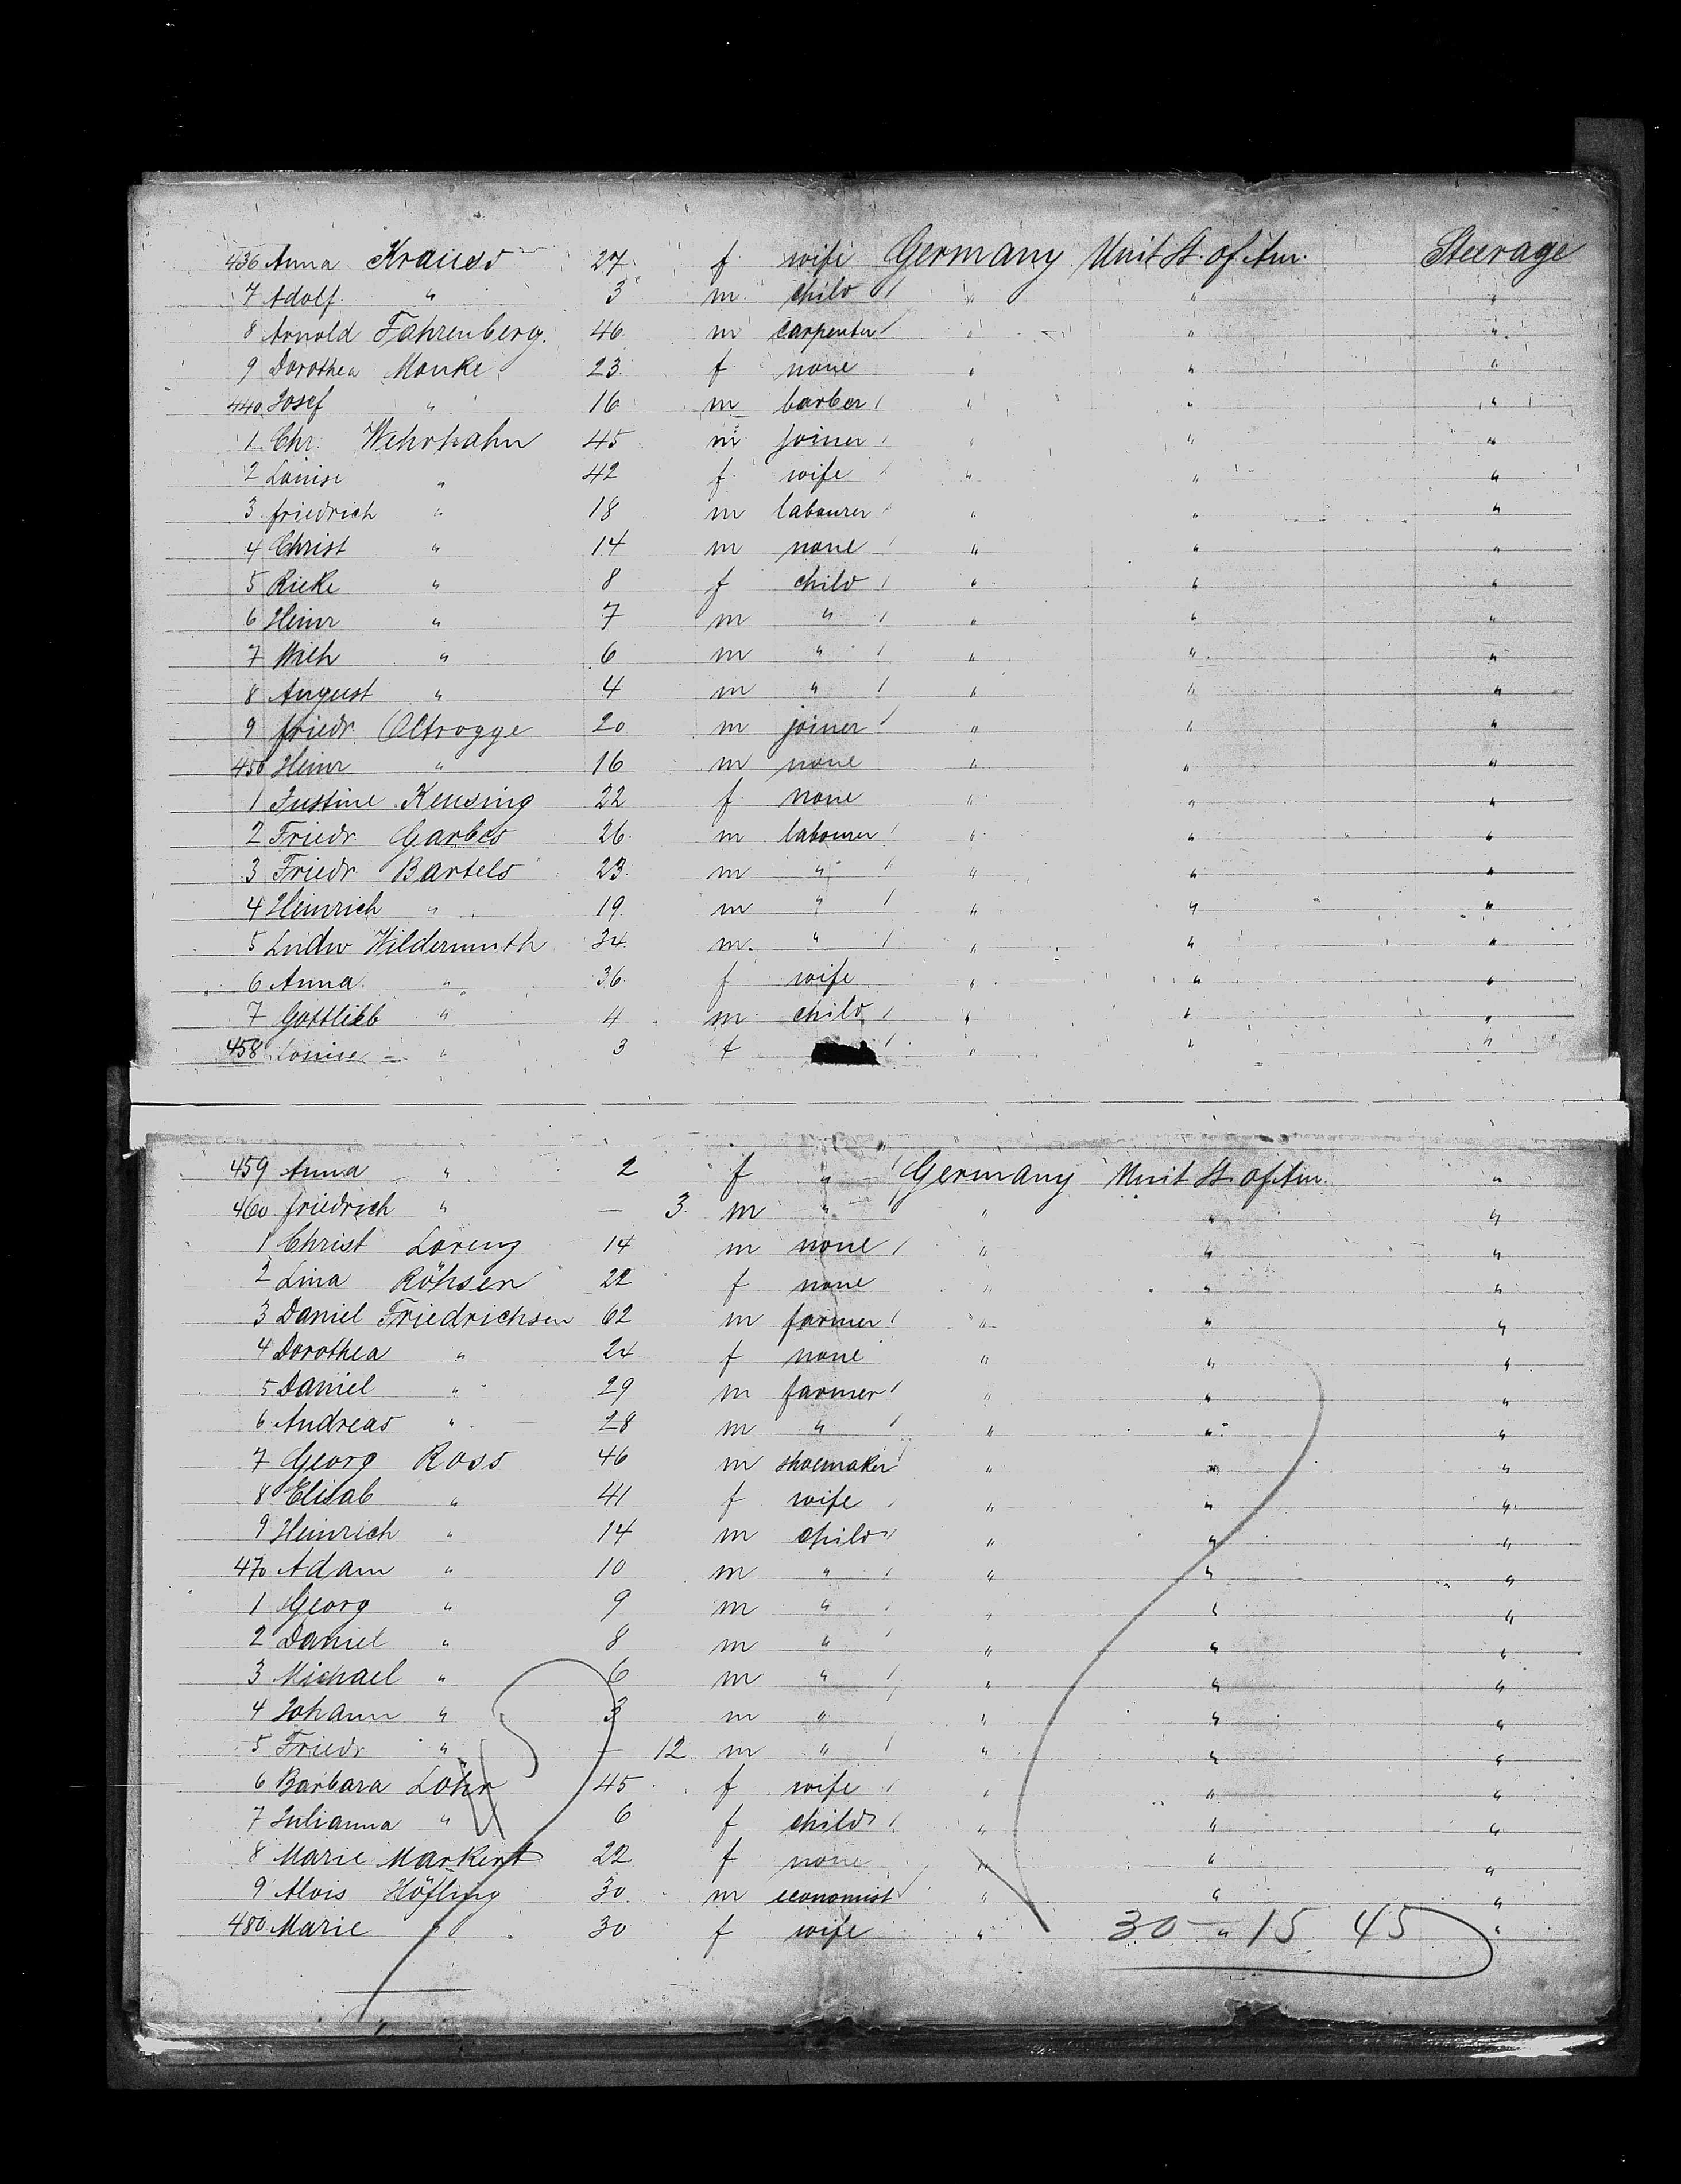 436 Anna Krauss 27 f wife Germany Unit St. of Am. Steerage
7 Adolf " 3 m child " " "
8 Arnold Fahrenberg. 46 m carpenter " " "
9 Dorothea Monke 23 f none " " "
440 Josef " 16 m barber " " "
1 Chr. Wehrhahn 45 m joiner " " "
2 Louise " 42 f wife " " "
3 friedrich " 18 m labourer " " "
4 Christ " 14 m none " " "
5 Rieke " 8 f child " " "
6 Heinr " 7 m " " " "
7 Wilh " 6 m " " " "
8 August " 4 m " " " "
9 friedr Oltrogge 20 m joiner " " "
450 Heinr " 16 m none " " "
1 Justine Kensing 22 f none " " "
2 Friedr Garbes 26 m labourer " " "
3 Friedr Bartels 23 m " " " "
4 Heinrich " 19 m " " " "
5 Ludw Wildermuth 34 m " " " "
6 Anna " 36 f wife " " "
7 Gottlieb " 4 m child " " "
458 Louise " 3 f " " "
459 Anna " 2 f " Germany Unit St. of Am. "
460 friedrich " — 3 m " " " "
1 Christ Lorenz 14 m none " " "
2 Lina Röhsen 22 f none " " "
3 Daniel Friedrichsen 62 m farmer " " "
4 Dorothea " 24 f none " " "
5 Daniel " 29 m farmer " " "
6 Andreas " 28 m " " " "
7 Georg Ross 46 m shoemaker " " "
8 Elisab " 41 f wife " " "
9 Heinrich " 14 m child " " "
470 Adam " 10 m " " " "
1 Georg " 9 m " " " "
2 Daniel " 8 m " " " "
3 Michael " 6 m " " " "
4 Johann " 3 m " " " "
5 Friedr " — 12 m " " " "
6 Barbara Löhr 45 f wife " " "
7 Julianna " 6 f child " " "
8 Marie Markert 22 f none " " "
9 Alois Höfling 30 m economist " " "
480 Marie " 30 f wife " " "
30 - 15 45